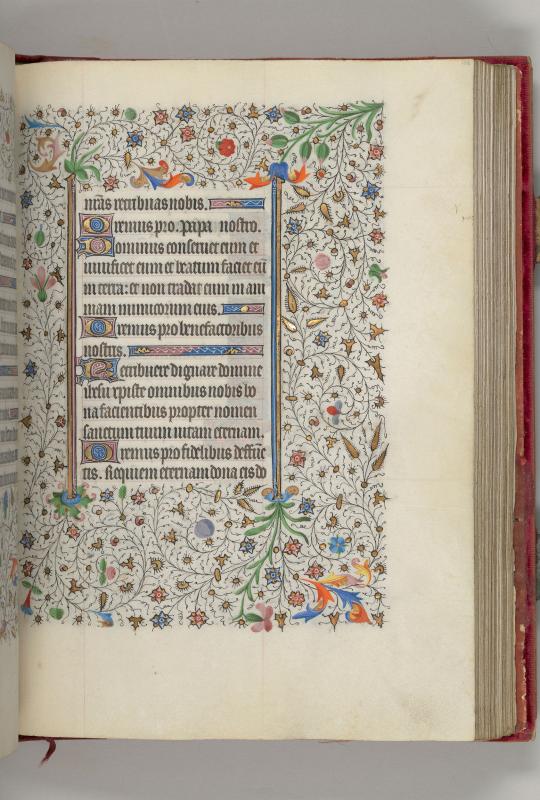 nr̄as retribuas nobis.
Oremus pro. papa nostro.
Dominus conseruet eum et
uiuificet eum et beatum faciet eū
in terra: et non tradat eum in ani
mam inimicorum eius.
Oremus pro benefactoribus
nostris.
Retribuere dignare domine
ihesu xpiste omnibus nobis bo
na facientibus propter nomen
sanctum tuum uitam eternam.
Oremus pro fidelibus deffūc
tis. Requiem eternam dona eis do